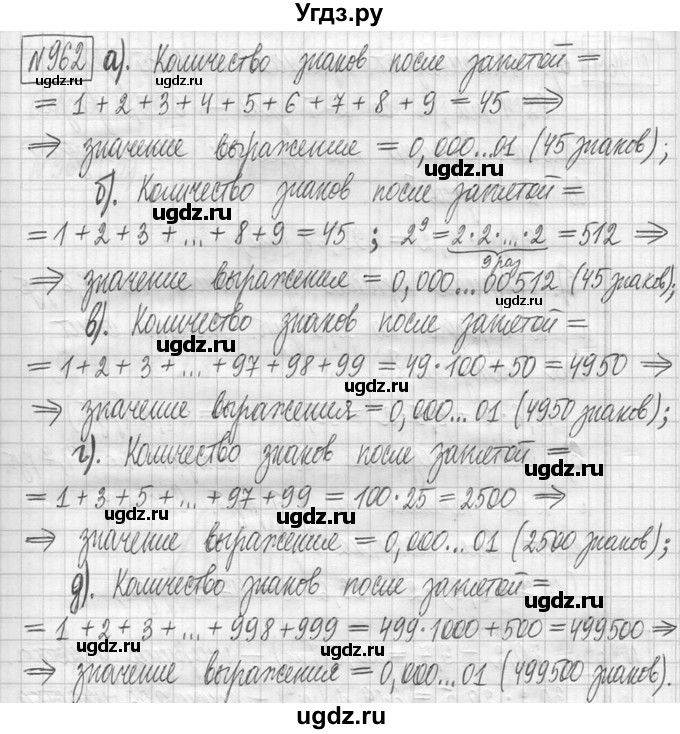 Угдз.ру
№962 а). Количество знаков после запятой =
= 1 + 2 + 3 + 4 + 5 + 6 + 7 + 8 + 9 = 45 ⇒
⇒ значение выражение = 0,000...01 (45 знаков);
б). Количество знаков после запятой =
= 1 + 2 + 3 + ... + 8 + 9 = 45 ; 2⁹ = 2·2·...·2 = 512 ⇒
9 раз
⇒ значение выражения = 0,000...00512 (45 знаков);
в). Количество знаков после запятой =
= 1 + 2 + 3 + ... + 97 + 98 + 99 = 49·100 + 50 = 4950 ⇒
⇒ значение выражения = 0,000...01 (4950 знаков);
г). Количество знаков после запятой =
= 1 + 3 + 5 + ... + 97 + 99 = 100·25 = 2500 ⇒
⇒ значение выражение = 0,000...01 (2500 знаков);
д). Количество знаков после запятой =
= 1 + 2 + 3 + ... + 998 + 999 = 499·1000 + 500 = 499500 ⇒
⇒ значение выражения = 0,000...01 (499500 знаков).
ugdz.ru